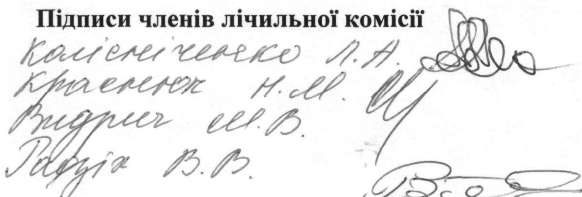 Підписи членів лічильної комісії
Колісніченко Л. А.
Краснюк Н. М.
Видрич М. В.
В. В.